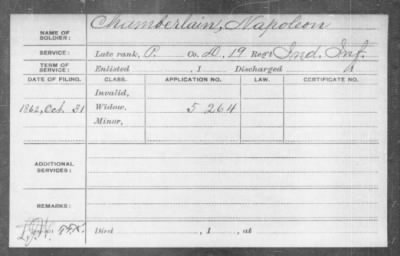 NAME OF SOLDIER: Chumberlain, Napoleon
SERVICE: Late rank, P. Co. D. 19 Reg't Ind. Inf.
TERM OF SERVICE: Enlisted , 1 Discharged , 1
DATE OF FILING. CLASS. APPLICATION NO. LAW. CERTIFICATE NO.
Invalid,
1862, Oct. 31 Widow, 5 264
Minor,
ADDITIONAL SERVICES:
REMARKS:
Died , 1 , at